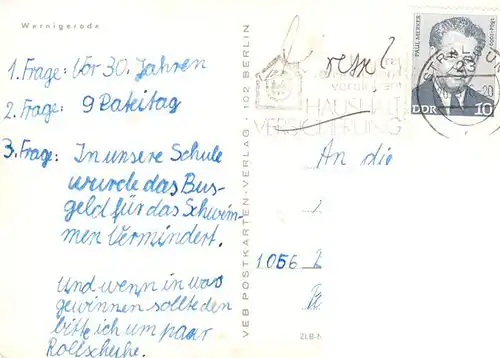 Wernigerode
1. Frage: Vor 30. Jahren
2. Frage: 9 Pateitag
3. Frage: In unsere Schule
wurde das Bus-
geld für das Schwim-
men Vermindert.
Und wenn in was
gewinnen sollte den
bitte ich um paar
Rollschuhe.
VEB POSTKARTEN-VERLAG · 102 BERLIN
HAUSHALT
VERSICHERUNG
PAUL MERKER
DDR 10
STRALSUND
An die
1056